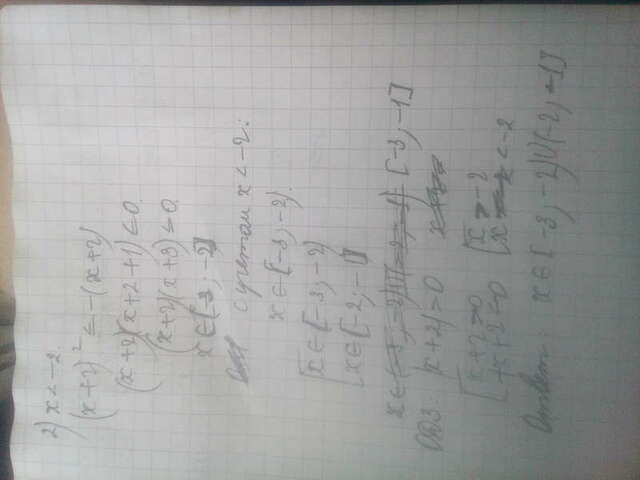 2) x < -2
(x+2)² ≤ -(x+2)
(x+2)(x+2+1) ≤ 0
(x+2)(x+3) ≤ 0
x ∈ [-3; -2]
с учетом x < -2:
x ∈ [-3; -2).
[ x ∈ [-3; -2)
[ x ∈ [-2; -1]
x ∈ [-3; -1]
ОДЗ: |x+2| > 0
[ x+2 > 0 [ x > -2
[ x+2 < 0 [ x < -2
Ответ: x ∈ [-3; -2) U (-2; -1]